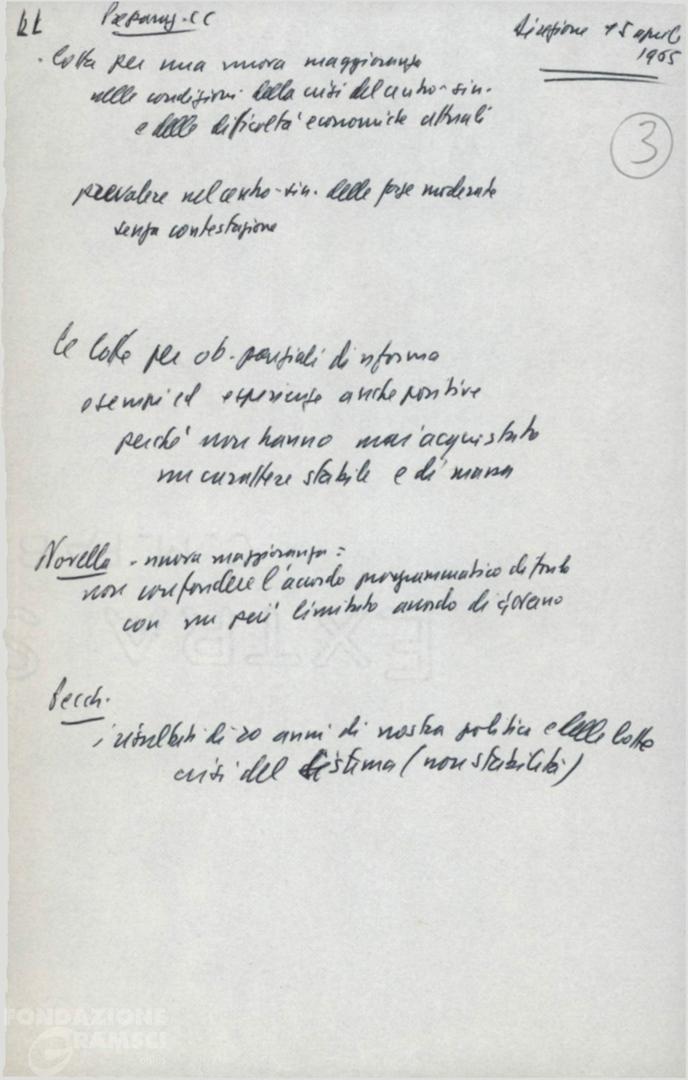 Preparaz. CC
Direzione 15 aprile
1965
3
- lotta per una nuova maggioranza
nelle condizioni della crisi del centro-sin.
e delle dificoltà economiche attuali
prevalere nel centro-sin. delle forze moderate
senza contestazione
le lotte per ob. parziali di riforma
esempi ed esperienze anche positive
perché non hanno mai acquistato
un carattere stabile e di massa
Novella - nuova maggioranza:
non confondere l'acordo programmatico di fondo
con un più limitato acordo di governo
Secch.
i risultati di 20 anni di nostra politica e delle lotte
crisi del sistema (non stabilità)
FONDAZIONE
GRAMSCI